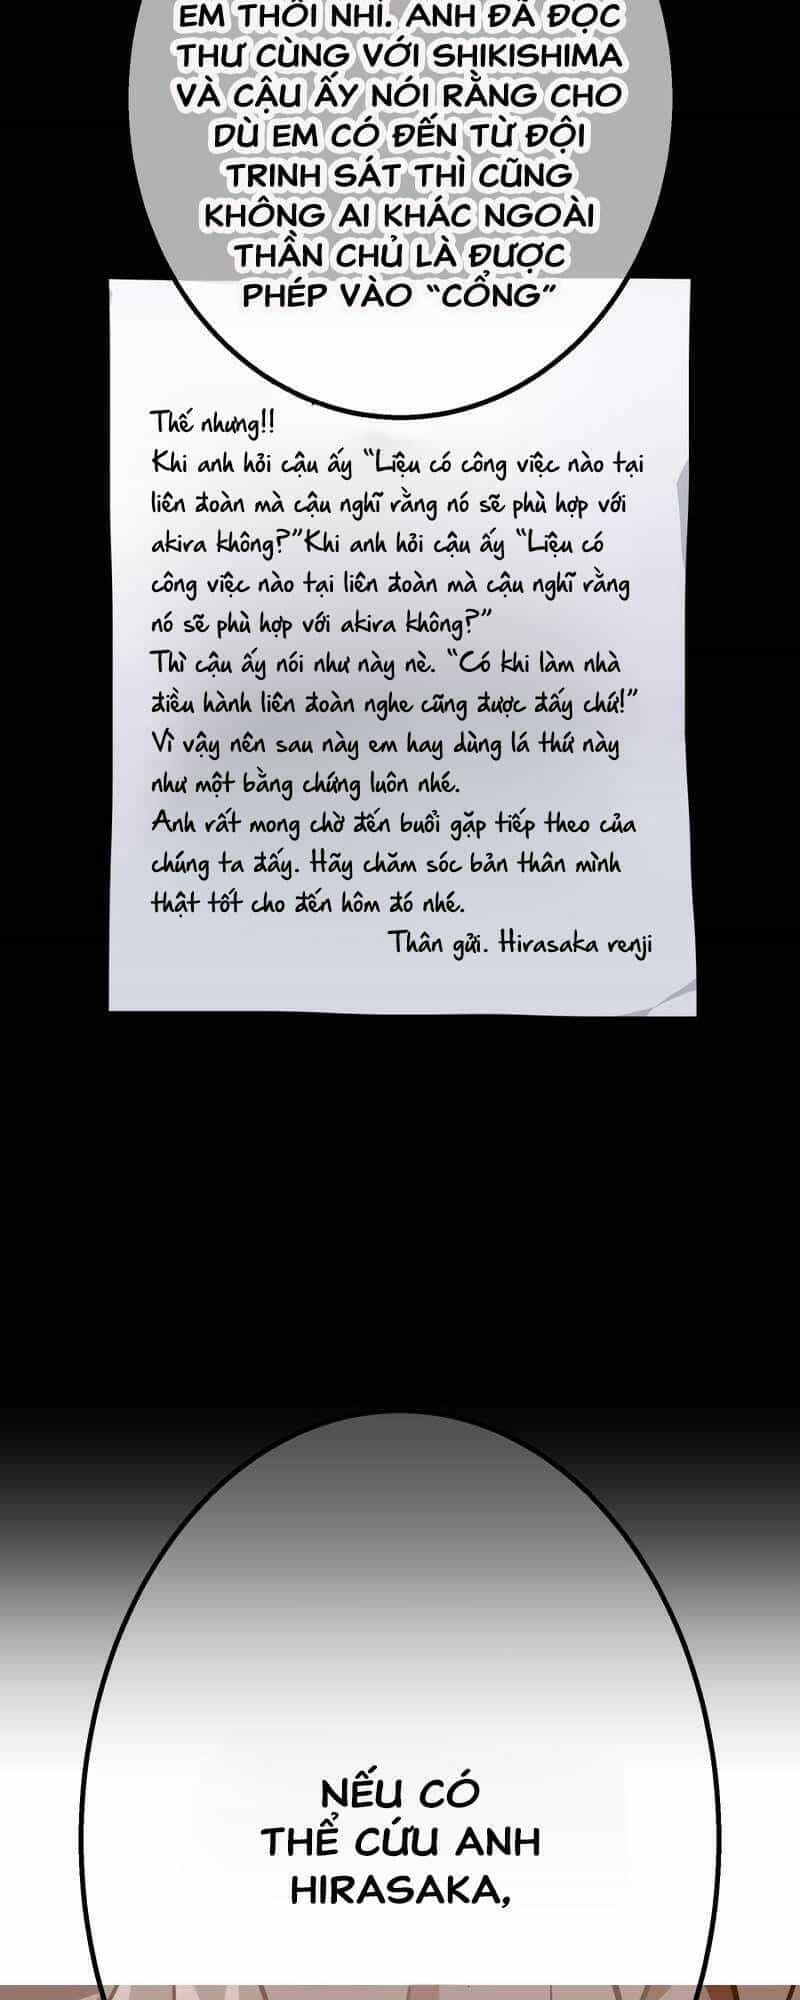 EM THÔI NHỈ. ANH ĐÃ ĐỌC
THƯ CÙNG VỚI SHIKISHIMA
VÀ CẬU ẤY NÓI RẰNG CHO
DÙ EM CÓ ĐẾN TỪ ĐỘI
TRINH SÁT THÌ CŨNG
KHÔNG AI KHÁC NGOÀI
THẦN CHỦ LÀ ĐƯỢC
PHÉP VÀO “CỔNG”
Thế nhưng!!
Khi anh hỏi cậu ấy “Liệu có công việc nào tại
liên đoàn mà cậu nghĩ rằng nó sẽ phù hợp với
akira không?”Khi anh hỏi cậu ấy “Liệu có
công việc nào tại liên đoàn mà cậu nghĩ rằng
nó sẽ phù hợp với akira không?”
Thì cậu ấy nói như này nè. “Có khi làm nhà
điều hành liên đoàn nghe cũng được đấy chứ!”
Vì vậy nên sau này em hay dùng lá thứ này
như một bằng chứng luôn nhé.
Anh rất mong chờ đến buổi gặp tiếp theo của
chúng ta đấy. Hãy chăm sóc bản thân mình
thật tốt cho đến hôm đó nhé.
Thân gửi. Hirasaka renji
NẾU CÓ
THỂ CỨU ANH
HIRASAKA,